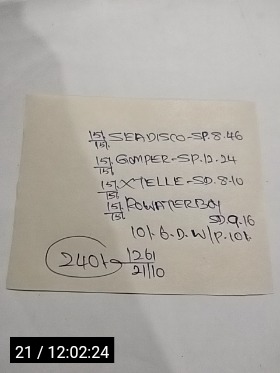 15/. SEADISCO-SP.8.46
15/.
15/. GOMPER-SP.12.24
15/.
15/. XTELLE-SD.8.10
15/.
15/. POWATIERBOY
15/. SD.9.16
10/. 6.D.W/P.10/.
240/. 1261
21/10
21 / 12:02:24